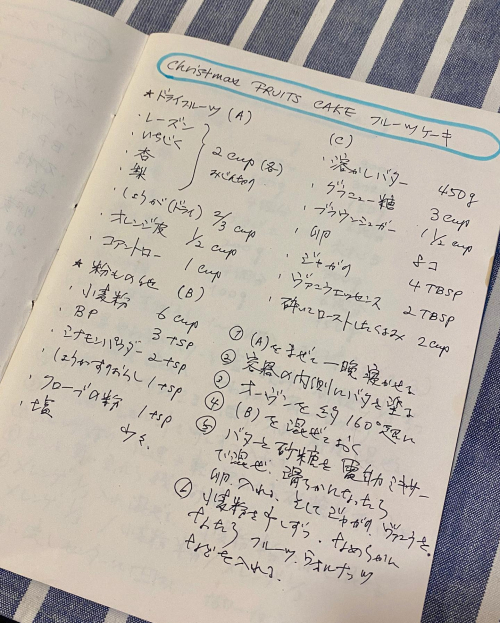 Christmas FRUITS CAKE フルーツケーキ
★ドライフルーツ (A)
・レーズン
・いちじく
・杏
・梨
2 cup (各)
みじんぎり
・しょうが(ドライ) 2/3 cup
・オレンジ皮 1/2 cup
・コアントロー 1 cup
★粉もの他 (B)
・小麦粉 6 cup
・BP 3 tsp
・シナモンパウダー 2 tsp
・しょうがすりおろし 1 tsp
・クローブの粉 1 tsp
・塩 少々
(C)
・溶かしバター 450g
・グラニュー糖 3 cup
・ブラウンシュガー 1 1/2 cup
・卵 8コ
・ジャガ 4 TBSP
・ヴァニラエッセンス 2 TBSP
・砕いてローストしたくるみ 2 cup
① (A)をまぜて一晩寝かせる
② 容器の内側にバターを塗る
③ オーヴンを 160°
④ (B)を混ぜておく
⑤ バターと砂糖を電動ミキサー
で混ぜ、滑らかになったら
卵入れる、そして ヴァニラを。
⑥ 小麦粉を少しずつ、なめらかに
なったら フルーツ、ウォルナッツ
などを入れる。